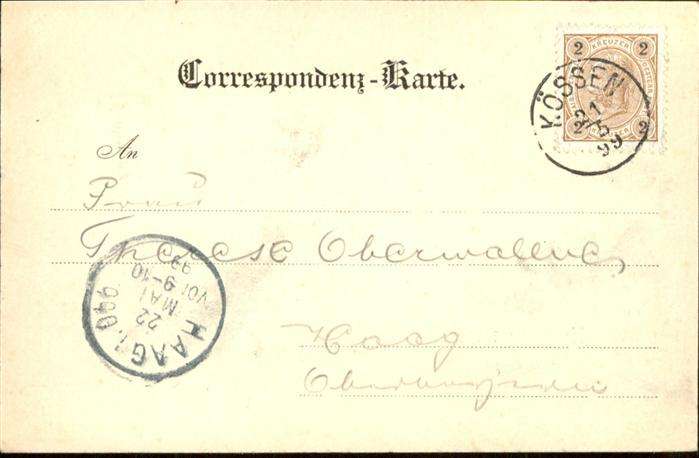 Correspondenz-Karte.
2 KREUZER 2
2 2
KÖSSEN
21
5
99
An
Frau
Therese Oberwallner,
Haag
HAAG i. O
22
MAI
VOR 9-10
99